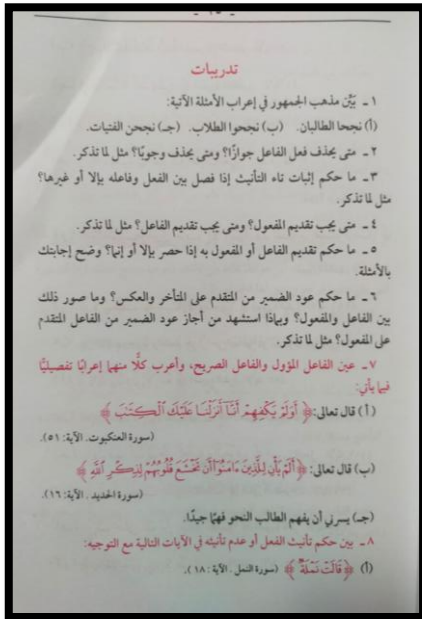 تدريبات
١ ـ بَيِّن مذهب الجمهور في إعراب الأمثلة الآتية:
(أ) نجحا الطالبان. (ب) نجحوا الطلاب. (جـ) نجحن الفتيات.
٢ ـ متى يحذف فعل الفاعل جوازًا؟ ومتى يحذف وجوبًا؟ مثل لما تذكر.
٣ ـ ما حكم إثبات تاء التأنيث إذا فصل بين الفعل وفاعله بإلا أو غيرها؟
مثل لما تذكر.
٤ ـ متى يجب تقديم المفعول؟ ومتى يجب تقديم الفاعل؟ مثل لما تذكر.
٥ ـ ما حكم تقديم الفاعل أو المفعول به إذا حصر بإلا أو إنما؟ وضح إجابتك
بالأمثلة.
٦ ـ ما حكم عود الضمير من المتقدم على المتأخر والعكس؟ وما صور ذلك
بين الفاعل والمفعول؟ وبماذا استشهد من أجاز عود الضمير من الفاعل المتقدم
على المفعول؟ مثل لما تذكر.
٧ ـ عين الفاعل المؤول والفاعل الصريح، وأعرب كلًّا منهما إعرابًا تفصيليًّا
فيما يأتي:
(أ) قال تعالى: ﴿ أَوَلَمْ يَكْفِهِمْ أَنَّآ أَنزَلْنَا عَلَيْكَ ٱلْكِتَٰبَ ﴾
(سورة العنكبوت. الآية: ٥١).
(ب) قال تعالى: ﴿ أَلَمْ يَأْنِ لِلَّذِينَ ءَامَنُوٓا۟ أَن تَخْشَعَ قُلُوبُهُمْ لِذِكْرِ ٱللَّهِ ﴾
(سورة الحديد. الآية: ١٦).
(جـ) يسرني أن يفهم الطالب النحو فهمًا جيدًا.
٨ ـ بين حكم تأنيث الفعل أو عدم تأنيثه في الآيات التالية مع التوجيه:
(أ) ﴿ قَالَتْ نَمْلَةٌ ﴾ (سورة النمل. الآية: ١٨).